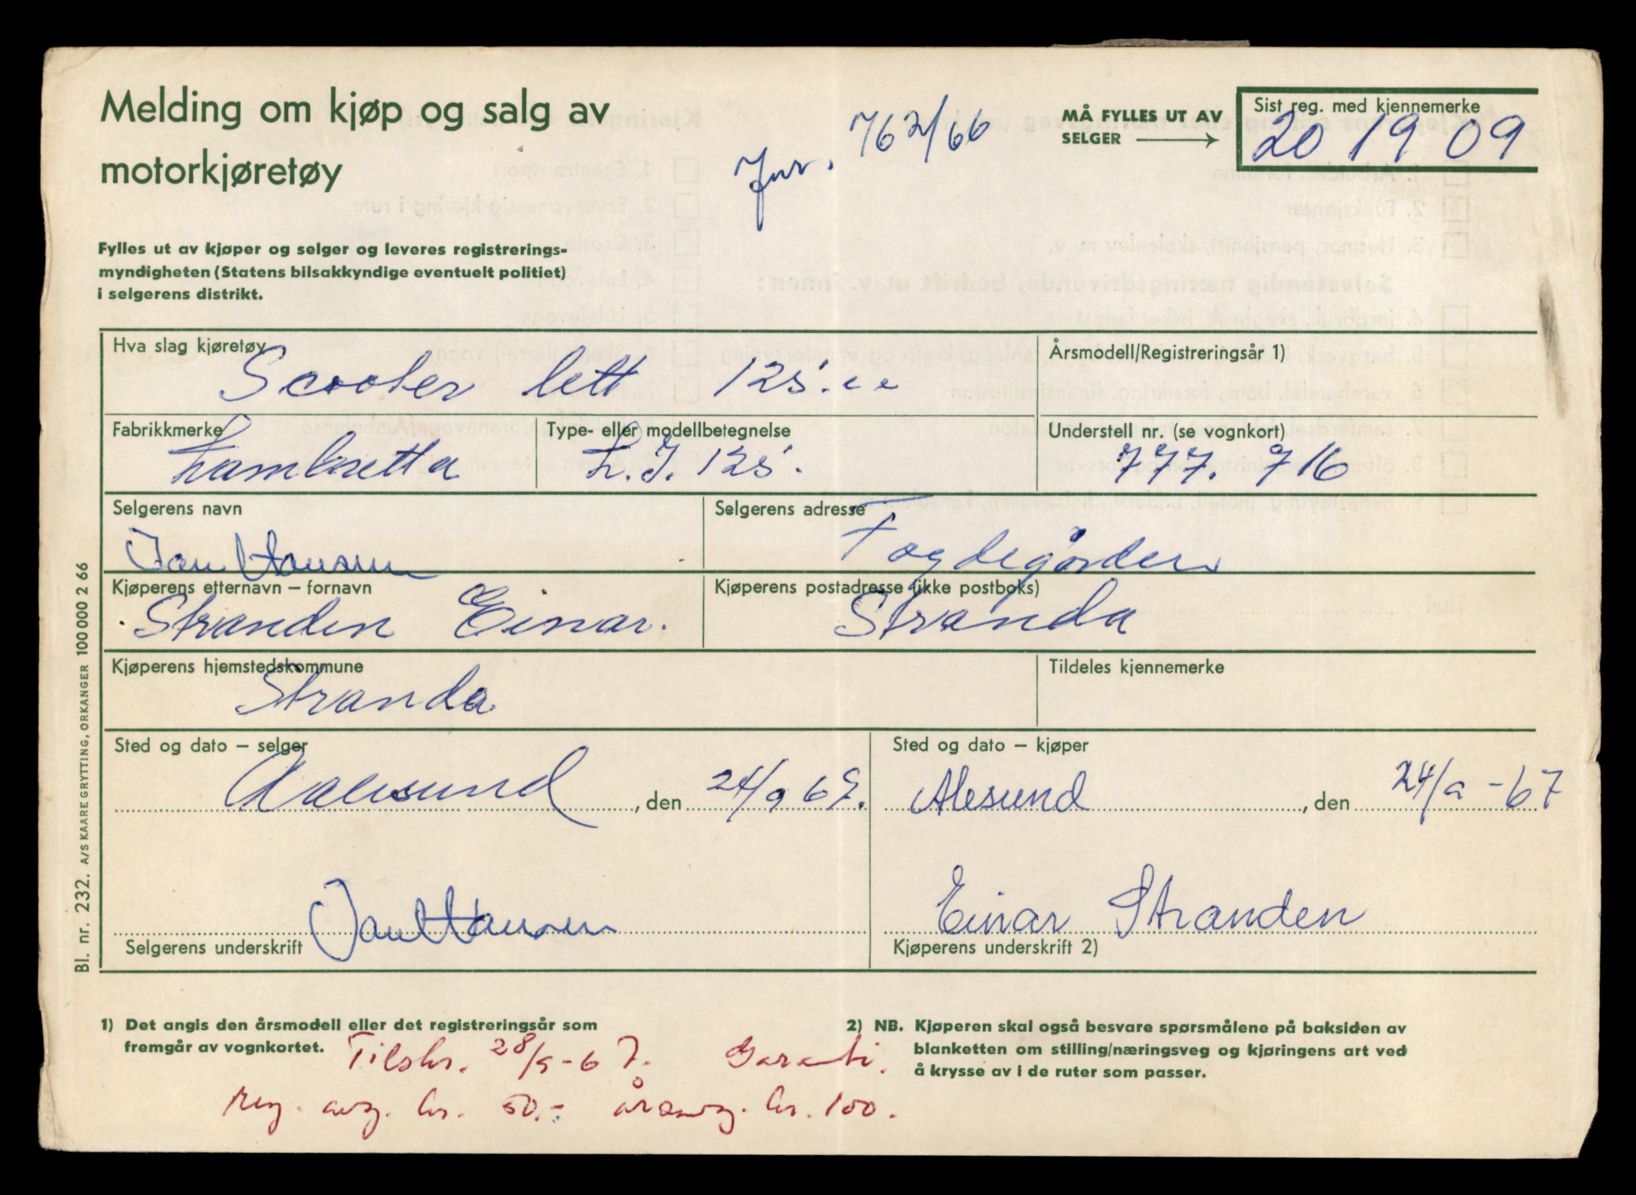 Melding om kjøp og salg av
motorkjøretøy
Jnr. 762/66
MÅ FYLLES UT AV
SELGER
Sist reg. med kjennemerke
20 19 09
Fylles ut av kjøper og selger og leveres registrerings-
myndigheten (Statens bilsakkyndige eventuelt politiet)
i selgerens distrikt.
Hva slag kjøretøy
Scooter lett 125.cc
Årsmodell/Registreringsår 1)
Fabrikkmerke
Lambretta
Type- eller modellbetegnelse
L.I. 125.
Understell nr. (se vognkort)
777.716
Selgerens navn
Jan Hansen
Selgerens adresse
Fogdegården
Kjøperens etternavn – fornavn
Stranden Einar.
Kjøperens postadresse (ikke postboks)
Stranda
Kjøperens hjemstedskommune
Stranda
Tildeles kjennemerke
Sted og dato – selger
Aalesund, den 24/9 67.
Sted og dato – kjøper
Alesund, den 24/9 -67
Jan Hansen
Selgerens underskrift
Einar Stranden
Kjøperens underskrift 2)
Bl. nr. 232. A/S KAARE GRYTTING, ORKANGER 100 000 2 66
1) Det angis den årsmodell eller det registreringsår som
fremgår av vognkortet.
2) NB. Kjøperen skal også besvare spørsmålene på baksiden av
blanketten om stilling/næringsveg og kjøringens art ved
å krysse av i de ruter som passer.
Tilskr. 28/9-67. Garanti.
reg. avg. kr. 50.- årsavg. kr. 100.